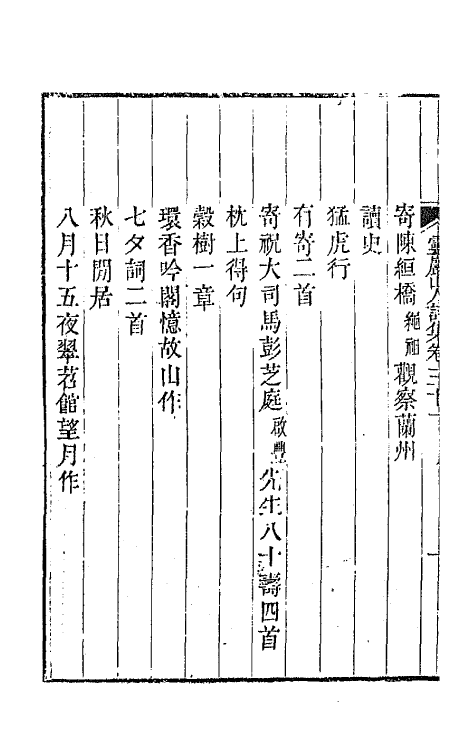 靈巖山人詩集卷三十
寄陳絙橋繩祖觀察蘭州
讀史
猛虎行
有寄二首
寄祝大司馬彭芝庭啟豐先生八十壽四首
枕上得句
穀樹一章
環香吟閣憶故山作
七夕詞二首
秋日閒居
八月十五夜翠苕館望月作